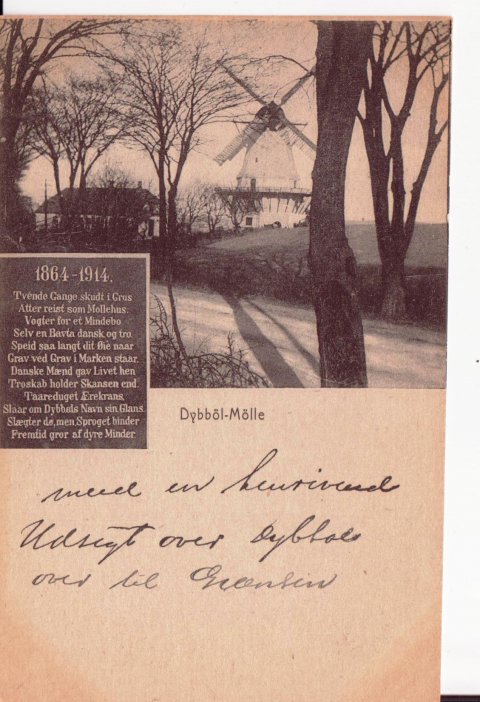 1864-1914.
Tvende Gange skudt i Grus
Atter reist som Møllehus.
Vogter for et Mindebo
Selv en Bavta dansk og tro.
Speid saa langt dit Øie naar
Grav ved Grav i Marken staar.
Danske Mænd gav Livet hen
Troskab holder Skansen end.
Taareduget Ærekrans
Slaar om Dybbøls Navn sin Glans.
Slægter dø, men Sproget binder
Fremtid gror af dyre Minder.
Dybböl-Mölle
med en henrivend
Udsigt over Dybbøl
over til Grænsen